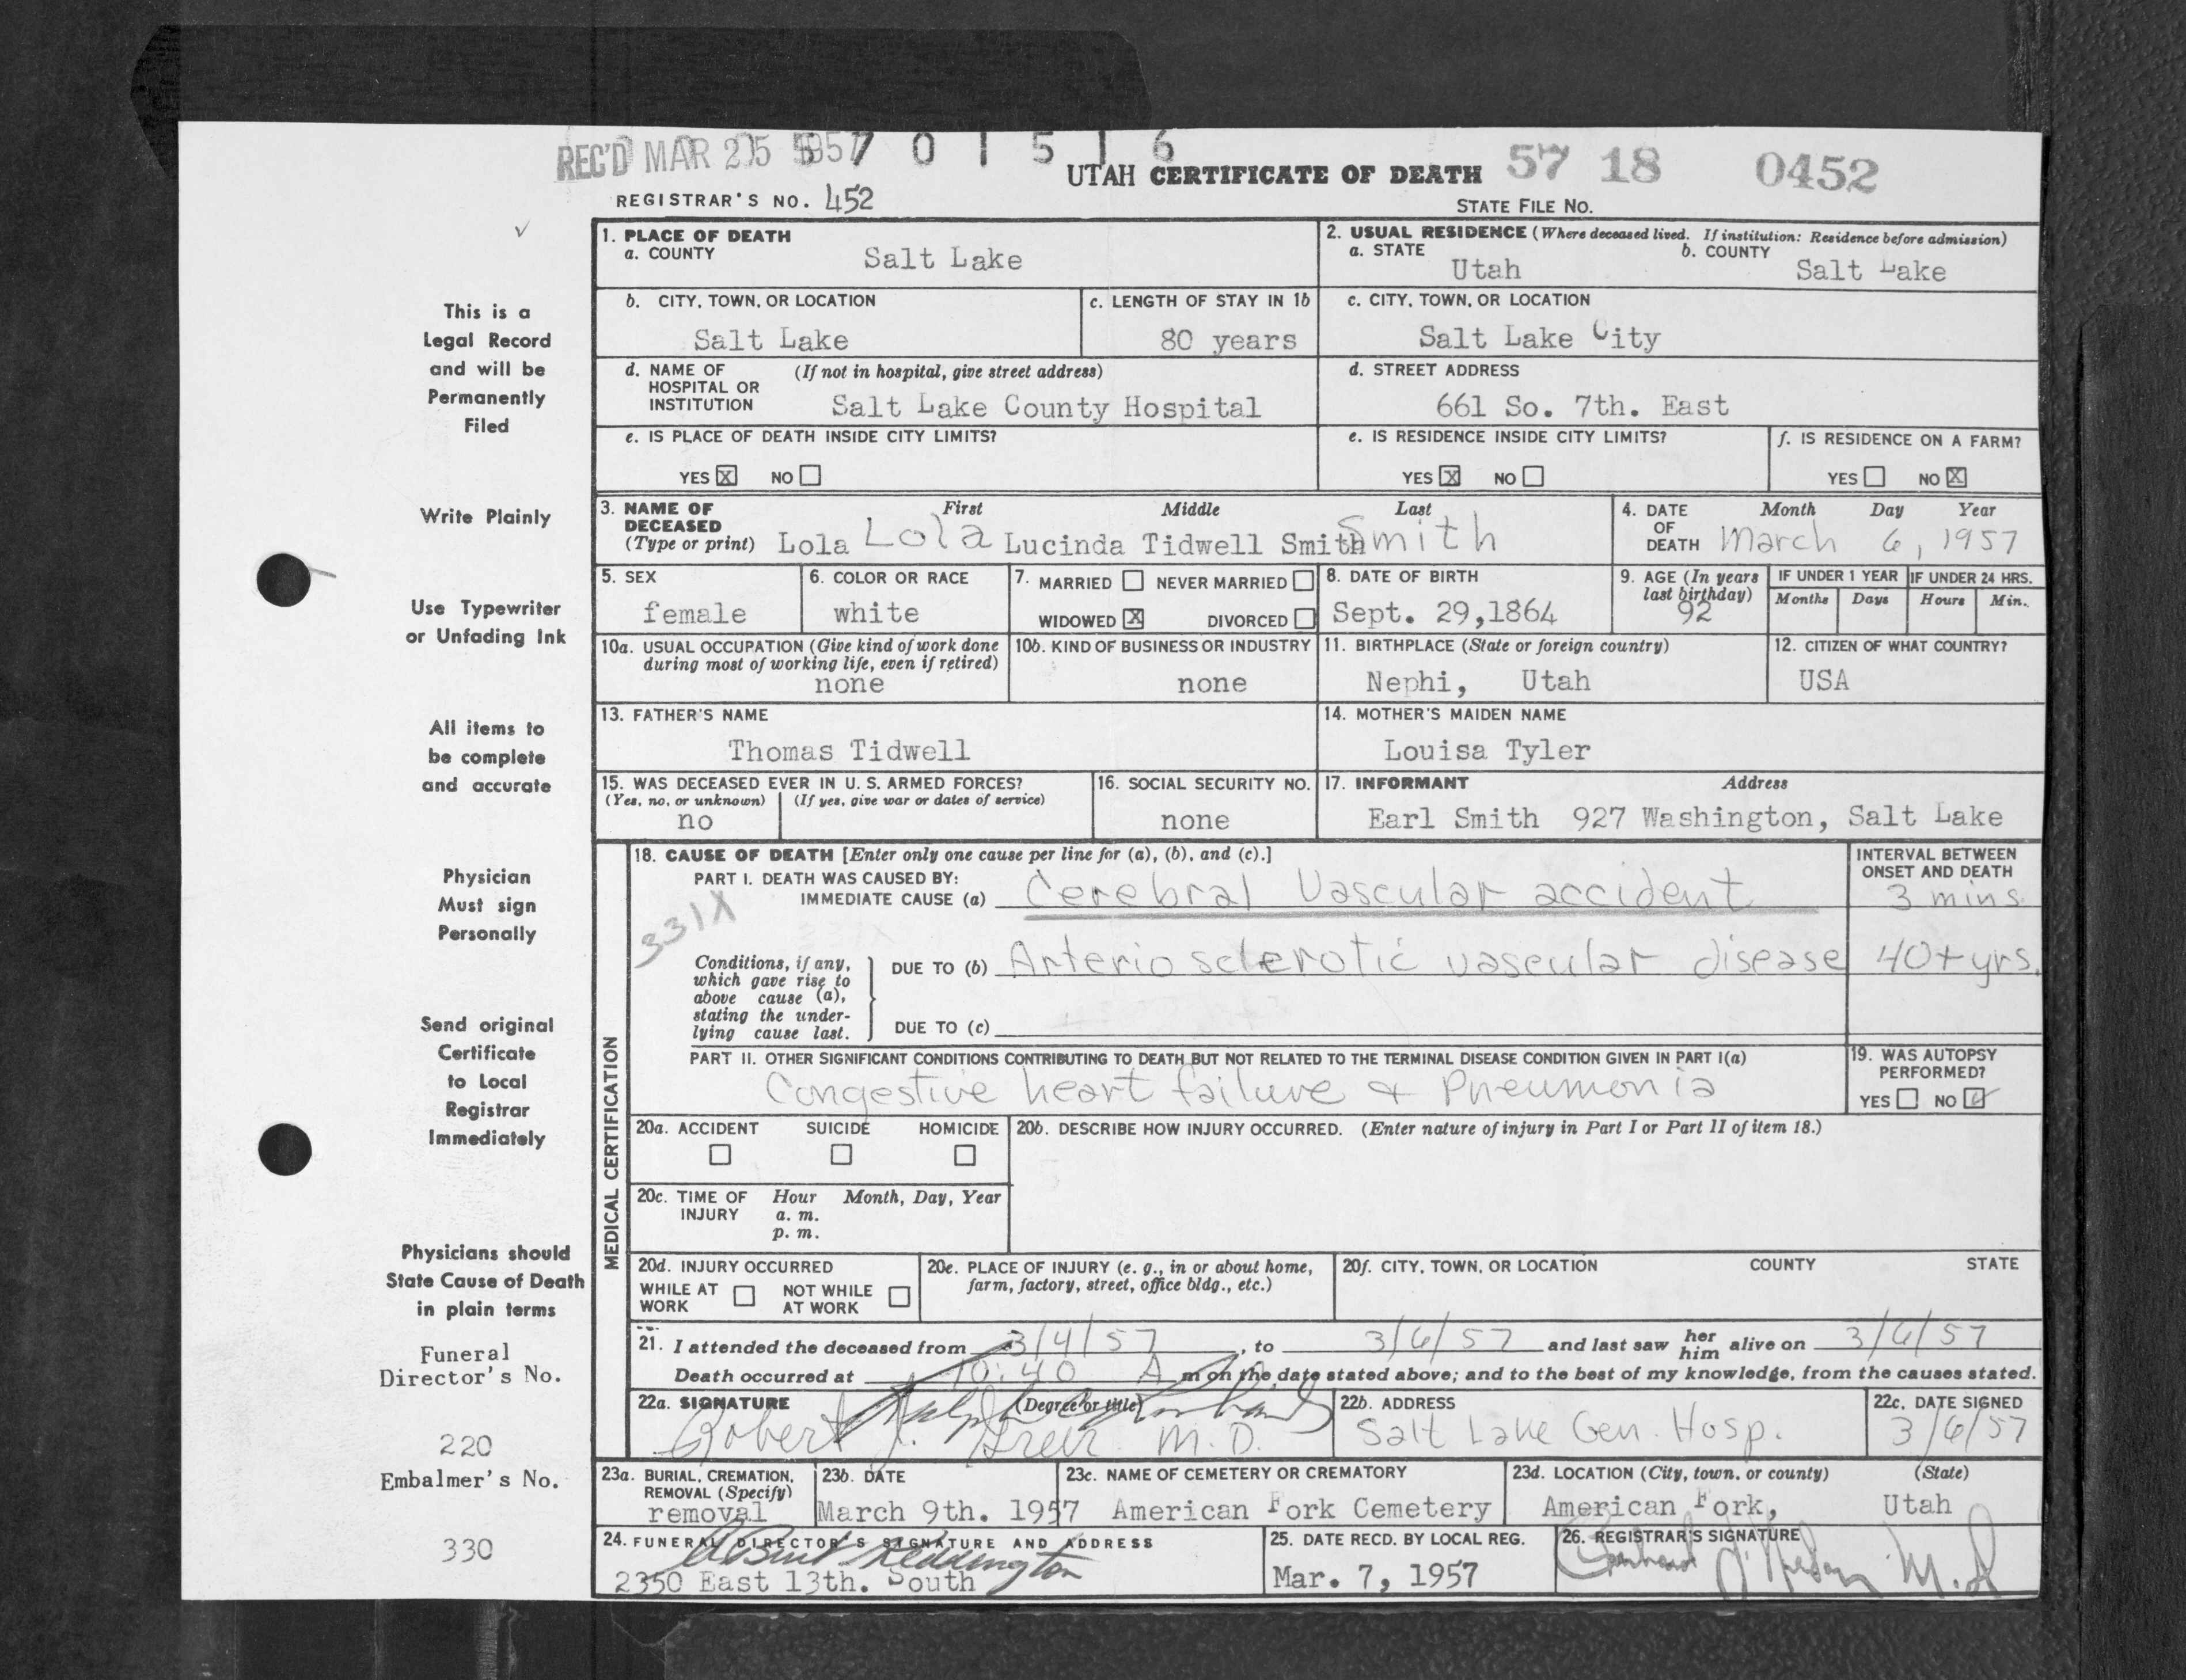 REC'D MAR 25 1957 5 7 0 1 5 1 6
UTAH CERTIFICATE OF DEATH 57 18 0452
REGISTRAR'S NO. 452
STATE FILE NO.
This is a
Legal Record
and will be
Permanently
Filed
Write Plainly
Use Typewriter
or Unfading Ink
All items to
be complete
and accurate
Physician
Must sign
Personally
Send original
Certificate
to Local
Registrar
Immediately
Physicians should
State Cause of Death
in plain terms
Funeral
Director's No.
220
Embalmer's No.
330
1. PLACE OF DEATH
a. COUNTY Salt Lake
2. USUAL RESIDENCE (Where deceased lived. If institution: Residence before admission)
a. STATE Utah b. COUNTY Salt Lake
b. CITY, TOWN, OR LOCATION
Salt Lake
c. LENGTH OF STAY IN 1b
80 years
c. CITY, TOWN, OR LOCATION
Salt Lake City
d. NAME OF HOSPITAL OR INSTITUTION (If not in hospital, give street address)
Salt Lake County Hospital
d. STREET ADDRESS
661 So. 7th. East
e. IS PLACE OF DEATH INSIDE CITY LIMITS?
YES X NO
e. IS RESIDENCE INSIDE CITY LIMITS?
YES X NO
f. IS RESIDENCE ON A FARM?
YES NO X
3. NAME OF DECEASED (Type or print) First Middle Last
Lola Lola Lucinda Tidwell Smith Smith
4. DATE OF DEATH Month Day Year
March 6, 1957
5. SEX
female
6. COLOR OR RACE
white
7. MARRIED NEVER MARRIED
WIDOWED X DIVORCED
8. DATE OF BIRTH
Sept. 29,1864
9. AGE (In years last birthday)
92
IF UNDER 1 YEAR IF UNDER 24 HRS.
Months Days Hours Min.
10a. USUAL OCCUPATION (Give kind of work done during most of working life, even if retired)
none
10b. KIND OF BUSINESS OR INDUSTRY
none
11. BIRTHPLACE (State or foreign country)
Nephi, Utah
12. CITIZEN OF WHAT COUNTRY?
USA
13. FATHER'S NAME
Thomas Tidwell
14. MOTHER'S MAIDEN NAME
Louisa Tyler
15. WAS DECEASED EVER IN U. S. ARMED FORCES?
(Yes, no, or unknown) (If yes, give war or dates of service)
no
16. SOCIAL SECURITY NO.
none
17. INFORMANT Address
Earl Smith 927 Washington, Salt Lake
MEDICAL CERTIFICATION
18. CAUSE OF DEATH [Enter only one cause per line for (a), (b), and (c).]
INTERVAL BETWEEN ONSET AND DEATH
PART I. DEATH WAS CAUSED BY:
IMMEDIATE CAUSE (a) Cerebral Vascular accident 3 mins
331X
Conditions, if any, which gave rise to above cause (a), stating the underlying cause last.
DUE TO (b) Arterio sclerotic vascular disease 40+ yrs.
DUE TO (c)
PART II. OTHER SIGNIFICANT CONDITIONS CONTRIBUTING TO DEATH BUT NOT RELATED TO THE TERMINAL DISEASE CONDITION GIVEN IN PART I(a)
Congestive heart failure & Pneumonia
19. WAS AUTOPSY PERFORMED?
YES NO ✓
20a. ACCIDENT SUICIDE HOMICIDE
20b. DESCRIBE HOW INJURY OCCURRED. (Enter nature of injury in Part I or Part II of item 18.)
20c. TIME OF INJURY Hour Month, Day, Year
a. m.
p. m.
20d. INJURY OCCURRED
WHILE AT WORK NOT WHILE AT WORK
20e. PLACE OF INJURY (e. g., in or about home, farm, factory, street, office bldg., etc.)
20f. CITY, TOWN, OR LOCATION COUNTY STATE
21. I attended the deceased from 3/4/57, to 3/6/57 and last saw her him alive on 3/6/57
Death occurred at 10:40 A m on the date stated above; and to the best of my knowledge, from the causes stated.
22a. SIGNATURE (Degree or title)
Robert J. M.D.
22b. ADDRESS
Salt Lake Gen. Hosp.
22c. DATE SIGNED
3/6/57
23a. BURIAL, CREMATION, REMOVAL (Specify)
removal
23b. DATE
March 9th. 1957
23c. NAME OF CEMETERY OR CREMATORY
American Fork Cemetery
23d. LOCATION (City, town, or county) (State)
American Fork, Utah
24. FUNERAL DIRECTOR'S SIGNATURE AND ADDRESS
2350 East 13th. South
25. DATE RECD. BY LOCAL REG.
Mar. 7, 1957
26. REGISTRAR'S SIGNATURE
M.D